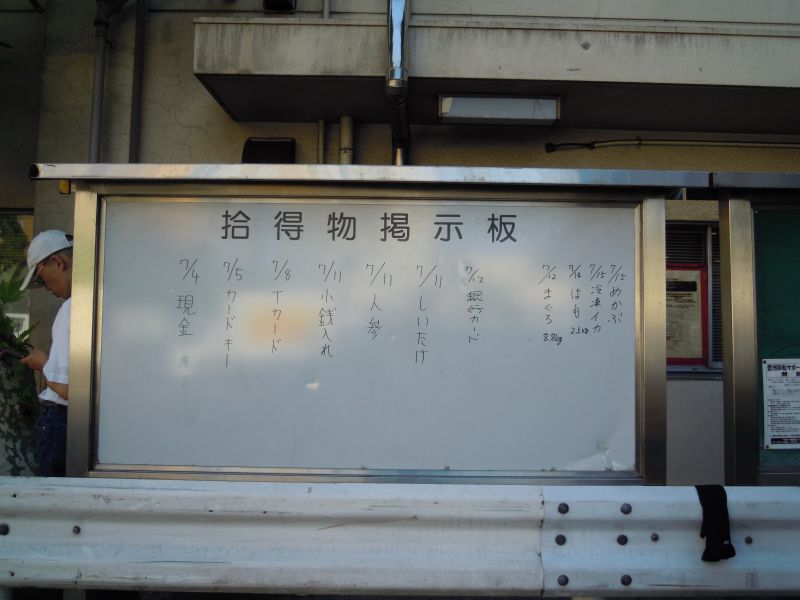 拾得物掲示板
7/4 現金
7/5 カードキー
7/8 Tカード
7/11 小銭入れ
7/11 人参
7/11 しいたけ
7/12 銀行カード
7/12 まぐろ 8.8kg
7/14 はも 2.5kg
7/15 冷凍イカ
7/15 めかぶ